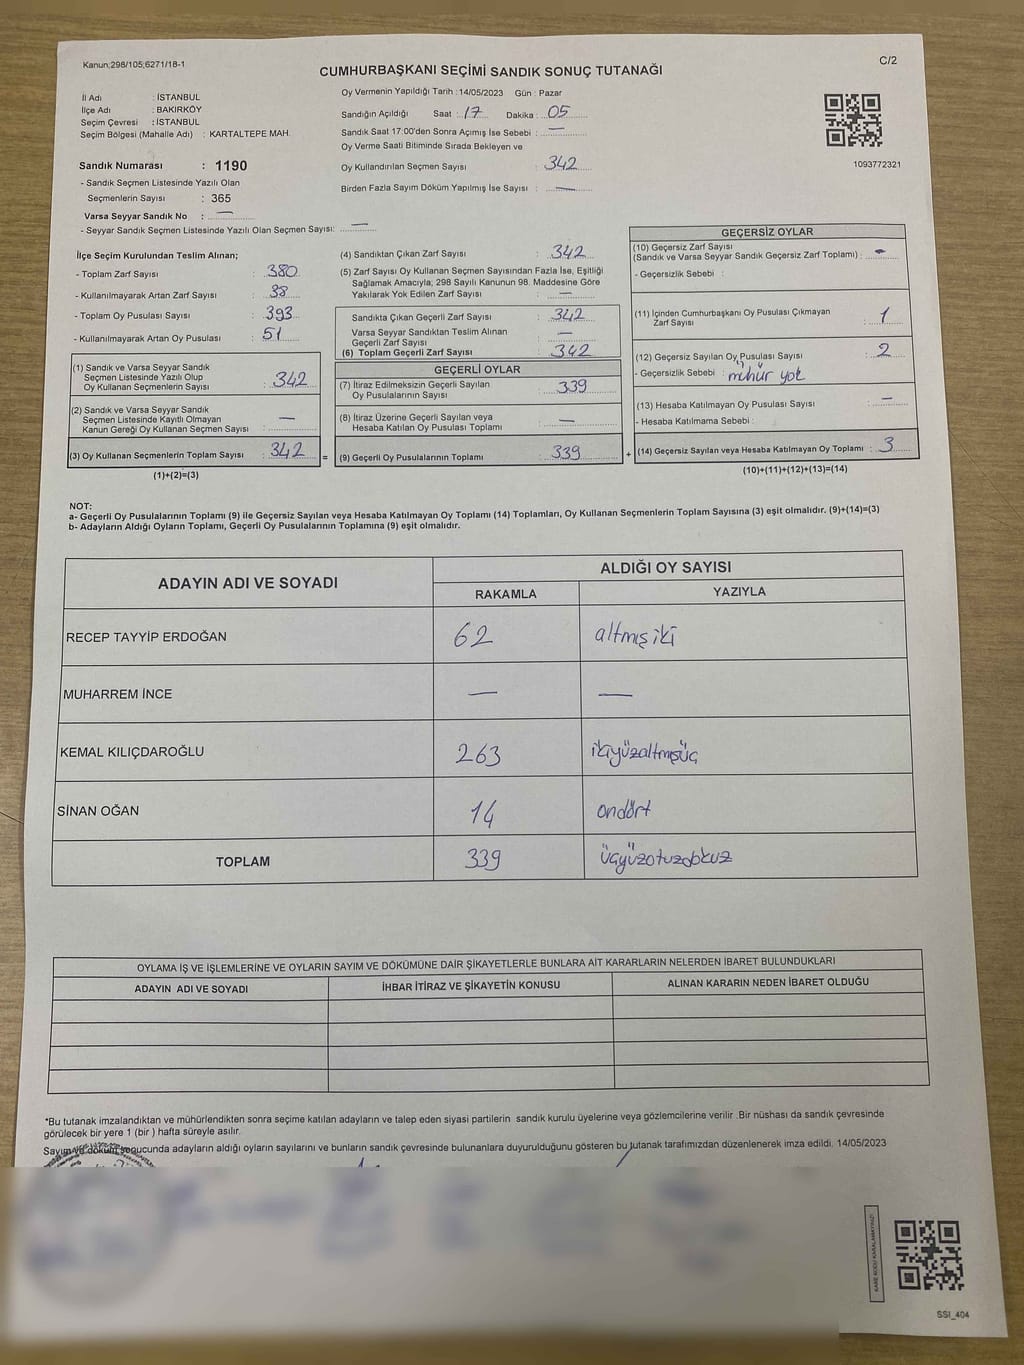 Kanun;298/105;6271/18-1
C/2
CUMHURBAŞKANI SEÇİMİ SANDIK SONUÇ TUTANAĞI
İl Adı : İSTANBUL
İlçe Adı : BAKIRKÖY
Seçim Çevresi : İSTANBUL
Seçim Bölgesi (Mahalle Adı) : KARTALTEPE MAH.
Sandık Numarası : 1190
- Sandık Seçmen Listesinde Yazılı Olan
Seçmenlerin Sayısı : 365
Varsa Seyyar Sandık No : —
- Seyyar Sandık Seçmen Listesinde Yazılı Olan Seçmen Sayısı: —
Oy Vermenin Yapıldığı Tarih :14/05/2023 Gün : Pazar
Sandığın Açıldığı Saat : 17 Dakika : 05
Sandık Saat 17:00'den Sonra Açımış İse Sebebi : —
Oy Verme Saati Bitiminde Sırada Bekleyen ve
Oy Kullandırılan Seçmen Sayısı : 342
Birden Fazla Sayım Döküm Yapılmış İse Sayısı : —
1093772321
İlçe Seçim Kurulundan Teslim Alınan;
- Toplam Zarf Sayısı : 380
- Kullanılmayarak Artan Zarf Sayısı : 38
- Toplam Oy Pusulası Sayısı : 393
- Kullanılmayarak Artan Oy Pusulası : 51
(1) Sandık ve Varsa Seyyar Sandık
Seçmen Listesinde Yazılı Olup
Oy Kullanan Seçmenlerin Sayısı : 342
(2) Sandık ve Varsa Seyyar Sandık
Seçmen Listesinde Kayıtlı Olmayan
Kanun Gereği Oy Kullanan Seçmen Sayısı : —
(3) Oy Kullanan Seçmenlerin Toplam Sayısı : 342 =
(1)+(2)=(3)
(4) Sandıktan Çıkan Zarf Sayısı : 342
(5) Zarf Sayısı Oy Kullanan Seçmen Sayısından Fazla İse, Eşitliği
Sağlamak Amacıyla; 298 Sayılı Kanunun 98. Maddesine Göre
Yakılarak Yok Edilen Zarf Sayısı : —
Sandıkta Çıkan Geçerli Zarf Sayısı : 342
Varsa Seyyar Sandıktan Teslim Alınan
Geçerli Zarf Sayısı : —
(6) Toplam Geçerli Zarf Sayısı : 342
GEÇERLİ OYLAR
(7) İtiraz Edilmeksizin Geçerli Sayılan
Oy Pusulalarının Sayısı : 339
(8) İtiraz Üzerine Geçerli Sayılan veya
Hesaba Katılan Oy Pusulası Toplamı : —
(9) Geçerli Oy Pusulalarının Toplamı 339 +
GEÇERSİZ OYLAR
(10) Geçersiz Zarf Sayısı
(Sandık ve Varsa Seyyar Sandık Geçersiz Zarf Toplamı) : -
- Geçersizlik Sebebi :
(11) İçinden Cumhurbaşkanı Oy Pusulası Çıkmayan
Zarf Sayısı : 1
(12) Geçersiz Sayılan Oy Pusulası Sayısı : 2
- Geçersizlik Sebebi : mühür yok
(13) Hesaba Katılmayan Oy Pusulası Sayısı : -
- Hesaba Katılmama Sebebi :
(14) Geçersiz Sayılan veya Hesaba Katılmayan Oy Toplamı : 3
(10)+(11)+(12)+(13)=(14)
NOT:
a- Geçerli Oy Pusulalarının Toplamı (9) ile Geçersiz Sayılan veya Hesaba Katılmayan Oy Toplamı (14) Toplamları, Oy Kullanan Seçmenlerin Toplam Sayısına (3) eşit olmalıdır. (9)+(14)=(3)
b- Adayların Aldığı Oyların Toplamı, Geçerli Oy Pusulalarının Toplamına (9) eşit olmalıdır.
ADAYIN ADI VE SOYADI
ALDIĞI OY SAYISI
RAKAMLA YAZIYLA
RECEP TAYYİP ERDOĞAN 62 altmışiki
MUHARREM İNCE — —
KEMAL KILIÇDAROĞLU 263 ikiyüzaltmışüç
SİNAN OĞAN 14 ondört
TOPLAM 339 üçyüzotuzdokuz
OYLAMA İŞ VE İŞLEMLERİNE VE OYLARIN SAYIM VE DÖKÜMÜNE DAİR ŞİKAYETLERLE BUNLARA AİT KARARLARIN NELERDEN İBARET BULUNDUKLARI
ADAYIN ADI VE SOYADI İHBAR İTİRAZ VE ŞİKAYETİN KONUSU ALINAN KARARIN NEDEN İBARET OLDUĞU
*Bu tutanak imzalandıktan ve mühürlendikten sonra seçime katılan adayların ve talep eden siyasi partilerin sandık kurulu üyelerine veya gözlemcilerine verilir .Bir nüshası da sandık çevresinde
görülecek bir yere 1 (bir ) hafta süreyle asılır.
Sayım ve döküm sonucunda adayların aldığı oyların sayılarını ve bunların sandık çevresinde bulunanlara duyurulduğunu gösteren bu tutanak tarafımızdan düzenlenerek imza edildi. 14/05/2023
KARE KODU KARALAMAYINIZ!
SSI_404